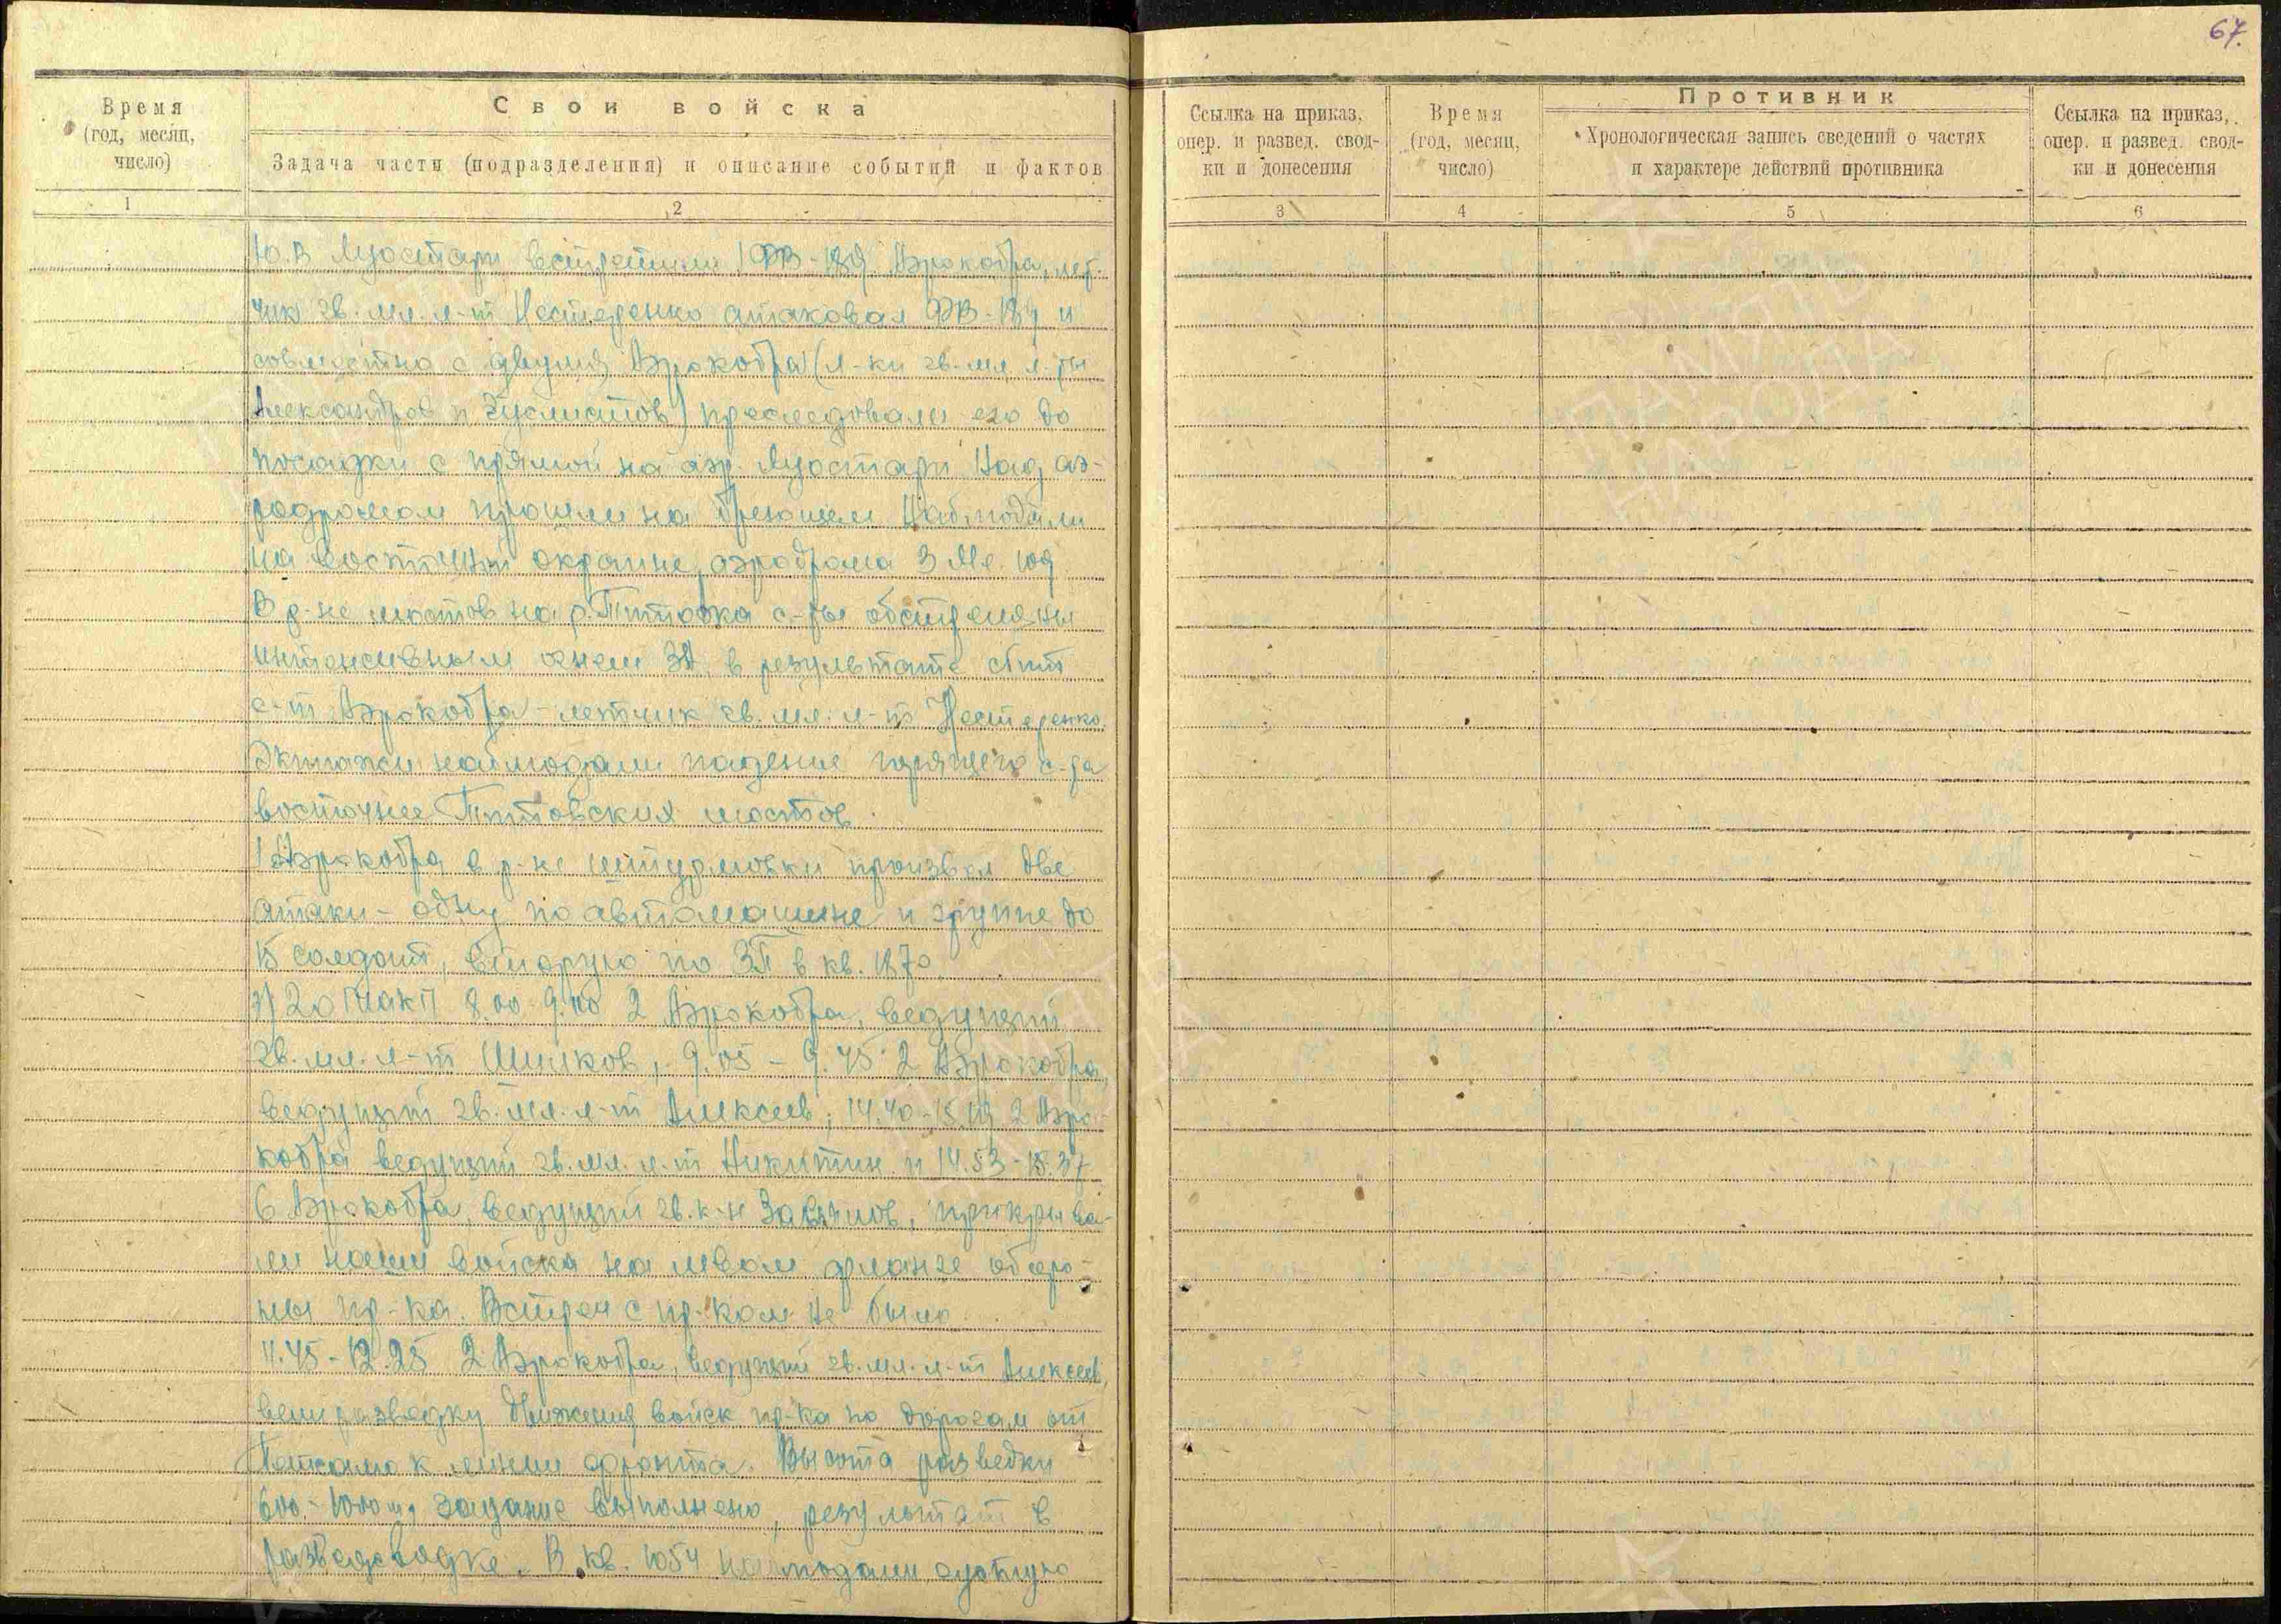 67.
Время
(год, месяц,
число)
Свои войска
Задача части (подразделения) и описание событий и фактов
1
2
Ссылка на приказ,
опер. и развед. свод-
ки и донесения
Время
(год, месяц,
число)
Противник
Хронологическая запись сведений о частях
и характере действий противника
Ссылка на приказ,
опер. и развед. свод-
ки и донесения
3
4
5
6
Ю.В Луостари встретили 1 ФВ-189. Аэрокобра, лет-
чик гв. мл. л-т Нестеренко атаковал ФВ-189 и
совместно с двумя Аэрокобра (л-ки гв. мл. л-ты
Александров и) преследовали его до
посадки с прямой на аэр. Луостари. Над аэ-
родромом прошли на бреющем. Наблюдали
на восточной окраине аэродрома 3 Ме-109
В р-не мостов на р. Титовка с-ты обстреляны
интенсивным огнем ЗА, в результате сбит
с-т Аэрокобра - летчик гв. мл. л-т Нестеренко.
Экипажи наблюдали падение горящего с-та
восточнее Титовских мостов.
1 Аэрокобра в р-не штурмовки произвел две
атаки - одну по автомашине и группе до
15 солдат, вторую по ЗП в кв. 1870.
20 ГИАП 8.00-9.00 2 Аэрокобра, ведущий
гв. мл. л-т Шилков, 9.05 - 9.45 2 Аэрокобра,
ведущий гв. мл. л-т Алексеев; 14.40-15.19 2 Аэро-
кобра ведущий гв. мл. л-т Никитин и 14.53-15.37
6 Аэрокобра, ведущий гв. к-н Завьялов, прикрыва-
ли наши войска на левом фланге оборо-
ны пр-ка. Встреч с пр-ком не было.
11.45-12.25 2 Аэрокобра, ведущий гв. мл. л-т Алексеев,
вели разведку движения войск пр-ка по дорогам от
Петсамо к линии фронта. Высота разведки
600-1000 м, задание выполнено, результат в
разведсводке. В кв. 1054 наблюдали